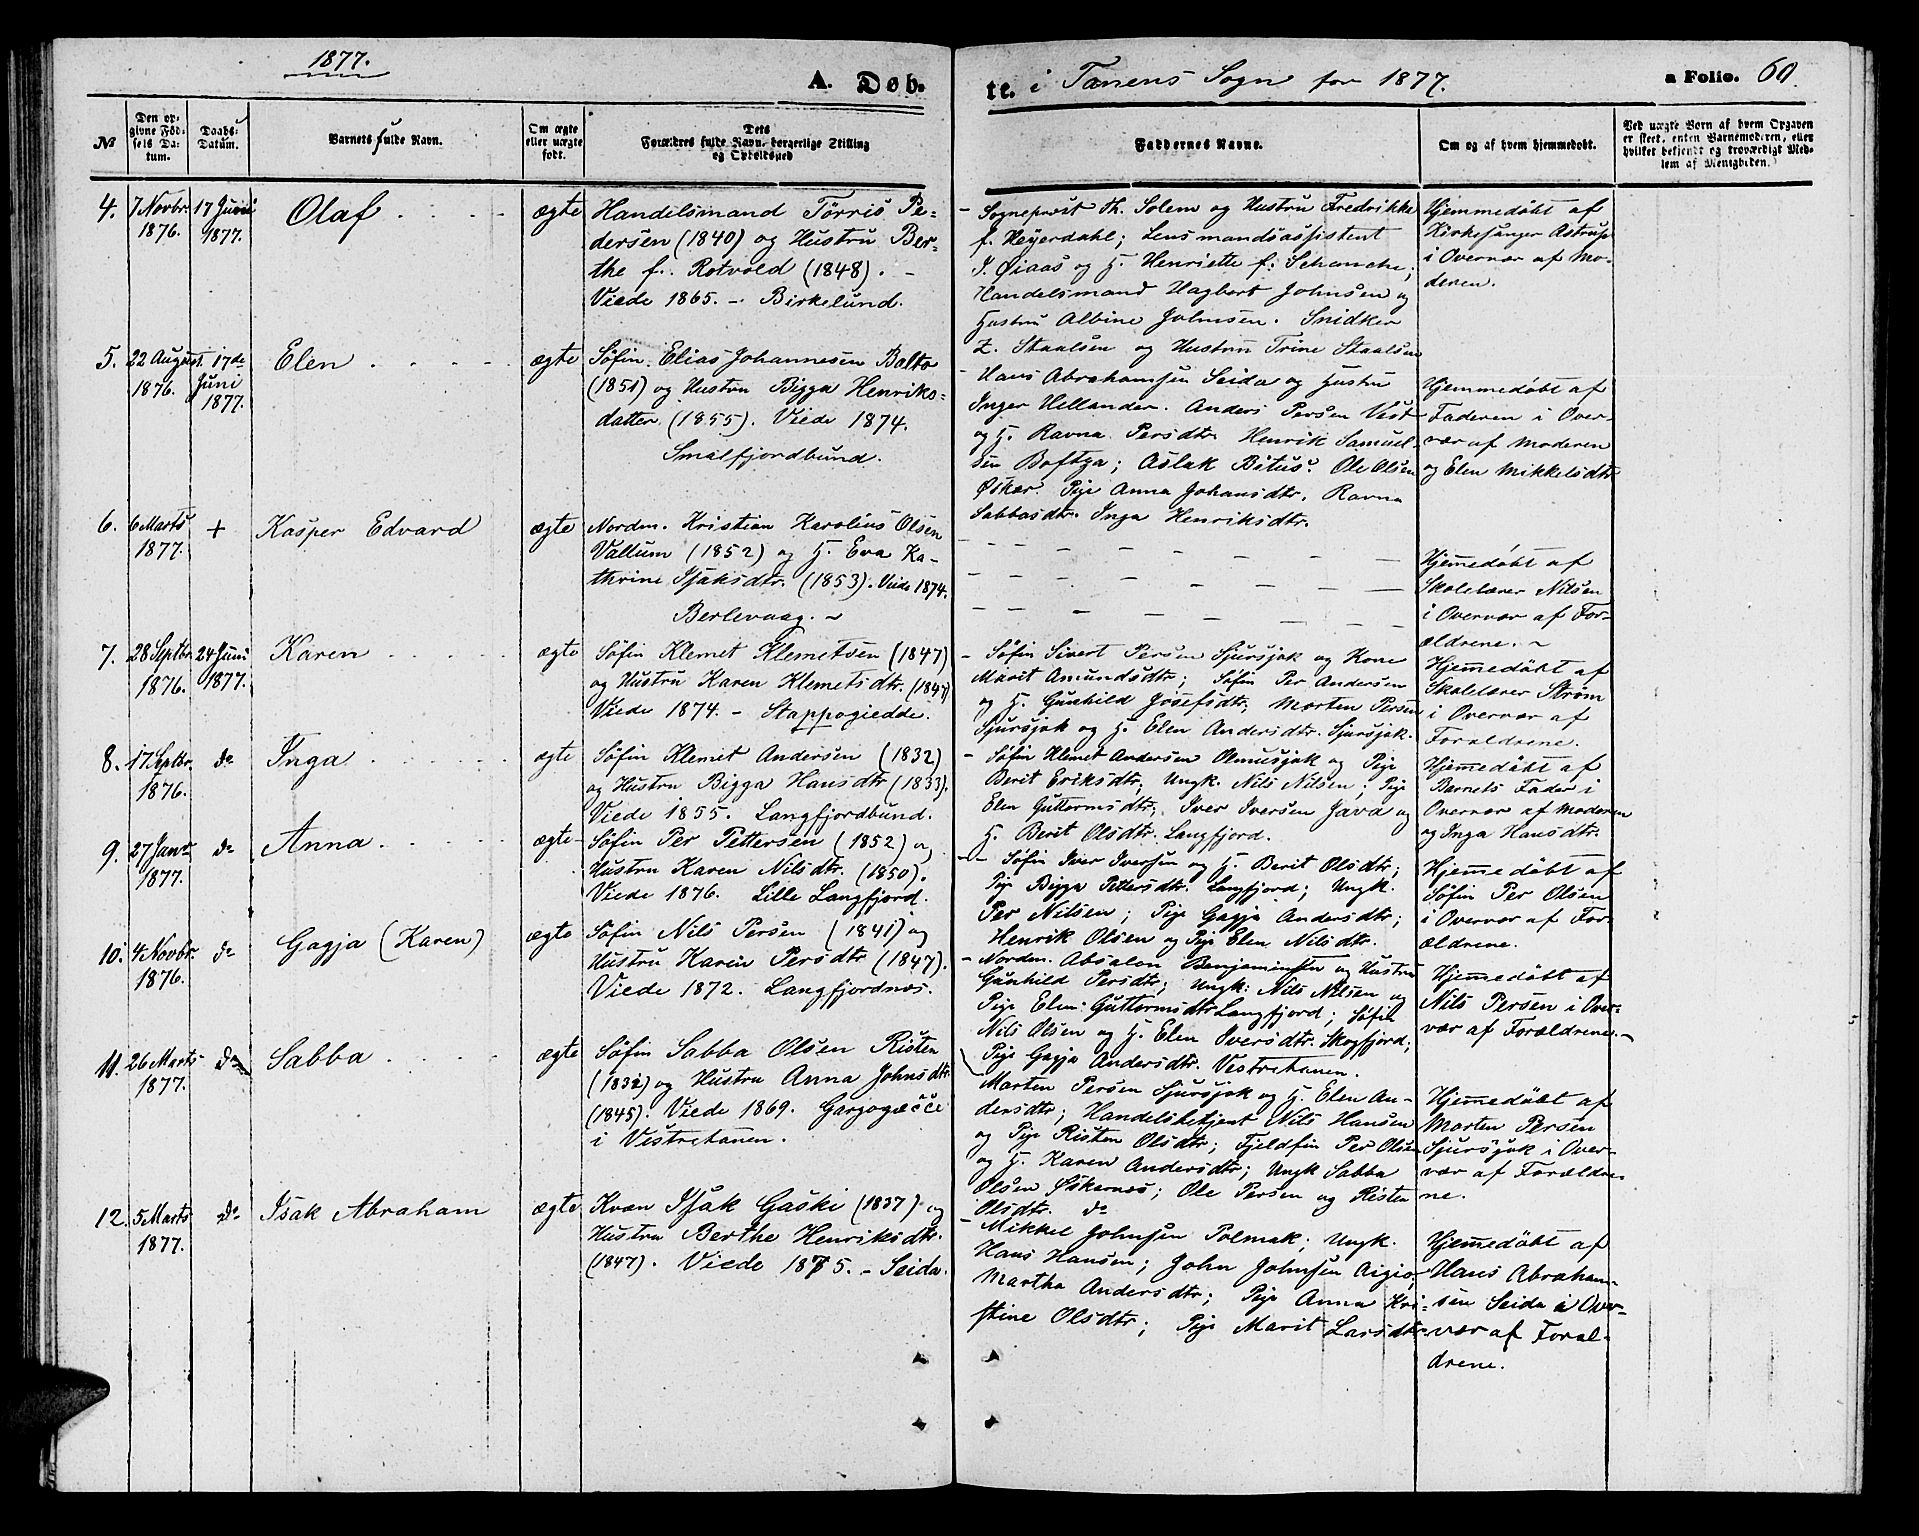 1877.
A. Døb.
te. i Tanens Sogn for 1877.
a Folio. 60.
№
Den opgivne Fødsels Datum.
Daabs-Datum.
Barnets fulde Navn.
Om ægte eller uægte født.
Dets Forældres fulde Navn, borgerlige Stilling og Opholdssted
Faddernes Navne.
Om og af hvem hjemmedøbt.
Ved uægte Børn af hvem Opgaven er skeet, enten Barnemoderen, eller hvilket bekjendt og troværdigt Medlem af Menigheden.
4. 7 Novbr. 1876. 17 Juni 1877. Olaf ægte
Handelsmand Törris Pe-
dersen (1840) og Hustru Ber-
the f. Rotvold (1848). -
Viede 1865. - Birkelund.
- Sogneprest Th. Solem og Hustru Fredrikke
f. Heyerdahl; Lensmandsassistent
J. Øiaas og H. Henriette f: Schanche;
Handelsmand Hagbart Johnsen og
Hustru Albine Johnsen. Snidker
Z. Staalsen og Hustru Trine Staalsen
Hjemmedöbt af
Kirkesanger Astrup
i Overvær af Mo-
deren.
5. 22 August 1876. 17de Juni 1877. Elen ægte
Søfin. Elias Johannesen Balto
(1851) og Hustru Bigga Henriks-
datter (1855). Viede 1874.
Smalfjordbund.
- Hans Abrahamsen Seida og Hustru
Inger Hellander. Anders Persen Vest
og H. Ravna Persdtr. Henrik Samuel-
sen Boftga; Aslak Bitus. Ole Olsen
Øskar. Pige Anna Johansdtr. Ravna
Sabbasdtr. Inga Henriksdtr.
Hjemmedöbt af
Faderen i Over-
vær af Moderen
og Elen Mikkelsdtr
6. 6 Marts 1877. + Kasper Edvard ægte
Nordm. Kristian Karolius Olsen
Vallum (1852) og H. Eva Ka-
thrine Isaksdtr. (1853). Viede 1874.
Berlevaag. -
Hjemmedöbt af
Skolelærer Nilsen
i Overvær af For-
ældrene. -
7. 28 Septbr. 1876. 24 Juni 1877. Karen ægte
Søfin Klemet Klemetsen (1847)
og Hustru Karen Klemetsdtr. (1847)
Viede 1874. - Stappogiedde.
- Søfin Sivert Persen Sjursjok og Kone
Marit Amundsdtr; Søfin Per Andersen
og H. Gunhild Josefsdtr; Morten Persen
Sjursjok og H. Elen Andersdtr. Sjursjok.
Hjemmedöbt af
Skolelærer Ström
i Overvær af
Forældrene.
8. 17 Septbr. 1876. do Inga ægte
Søfin Klemet Andersen (1832)
og Hustru Bigga Hansdtr (1833).
Viede 1855. Langfjordbund.
- Søfin Klemet Andersen Olmusjok og Pige
Berit Eriksdtr; Ungk. Nils Nilsen; Pige
Elen Guttormsdtr; Iver Iversen Java og
H. Berit Olsdtr. Langfjord.
Hjemmedöbt af
Barnets Fader i
Overvær af Moderen
og Inga Hansdtr.
9. 27 Janr 1877. do Anna ægte
Søfin Per Pettersen (1852) og
Hustru Karen Nilsdtr. (1850).
Viede 1876. Lille Langfjord.
- Søfin Iver Iversen og H. Berit Olsdtr;
Pige Bigga Pettersdtr. Langfjord; Ungk.
Per Nilsen; Pige Gagja Andersdtr;
Henrik Olsen og Pige Elen Nilsdtr.
Hjemmedöbt af
Søfin Per Olsen
i Overvær af For-
ældrene.
10. 4 Novbr. 1876. do Gagja (Karen) ægte
Søfin Nils Persen (1841) og
Hustru Karen Persdtr (1847).
Viede 1872. Langfjordnæs.
- Nordm. Absalon Benjaminsen og Hustru
Gunhild Persdtr; Ungk: Nils Nilsen og
Pige Elen Guttormsdtr Langfjord; Søfin
Nils Olsen og H. Elen Iversdtr. Skogfjord;
Pige Gagja Andersdtr. Vestretanen.
Hjemmedöbt af
Nils Persen i Over-
vær af Forældrene. -
11. 26 Marts 1877. do Sabba ægte
Søfin Sabba Olsen Risten
(1832) og Hustru Anna Johnsdtr
(1845). Viede 1869. Gargogæčče
i Vestretanen.
Marten Persen Sjursjok og H. Elen An-
dersdtr; Handelsbetjent Nils Hansen
og Pige Risten Olsdtr; Fjeldfin Per Olsen
og H. Karen Andersdtr; Ungk Sabba
Olsen Øskernes; Ole Persen og Risten
Olsdtr. do
Hjemmedöbt af
Morten Persen
Sjursjok i Over-
vær af Forældre-
ne.
12. 5 Marts 1877. do Isak Abraham ægte
Kvæn Isak Gaski (1837) og
Hustru Berthe Henriksdtr.
(1847). Viede 1875. - Seida.
- Mikkel Johnsen Polmak; Ungk.
Hans Hansen; John Johnsen Aigio;
Martha Andersdtr; Pige Anna Kri-
stine Olsdtr; Pige Marit Larsdtr
Hjemmedöbt af
Hans Abraham-
sen Seida i Over-
vær af Foræl-
drene.